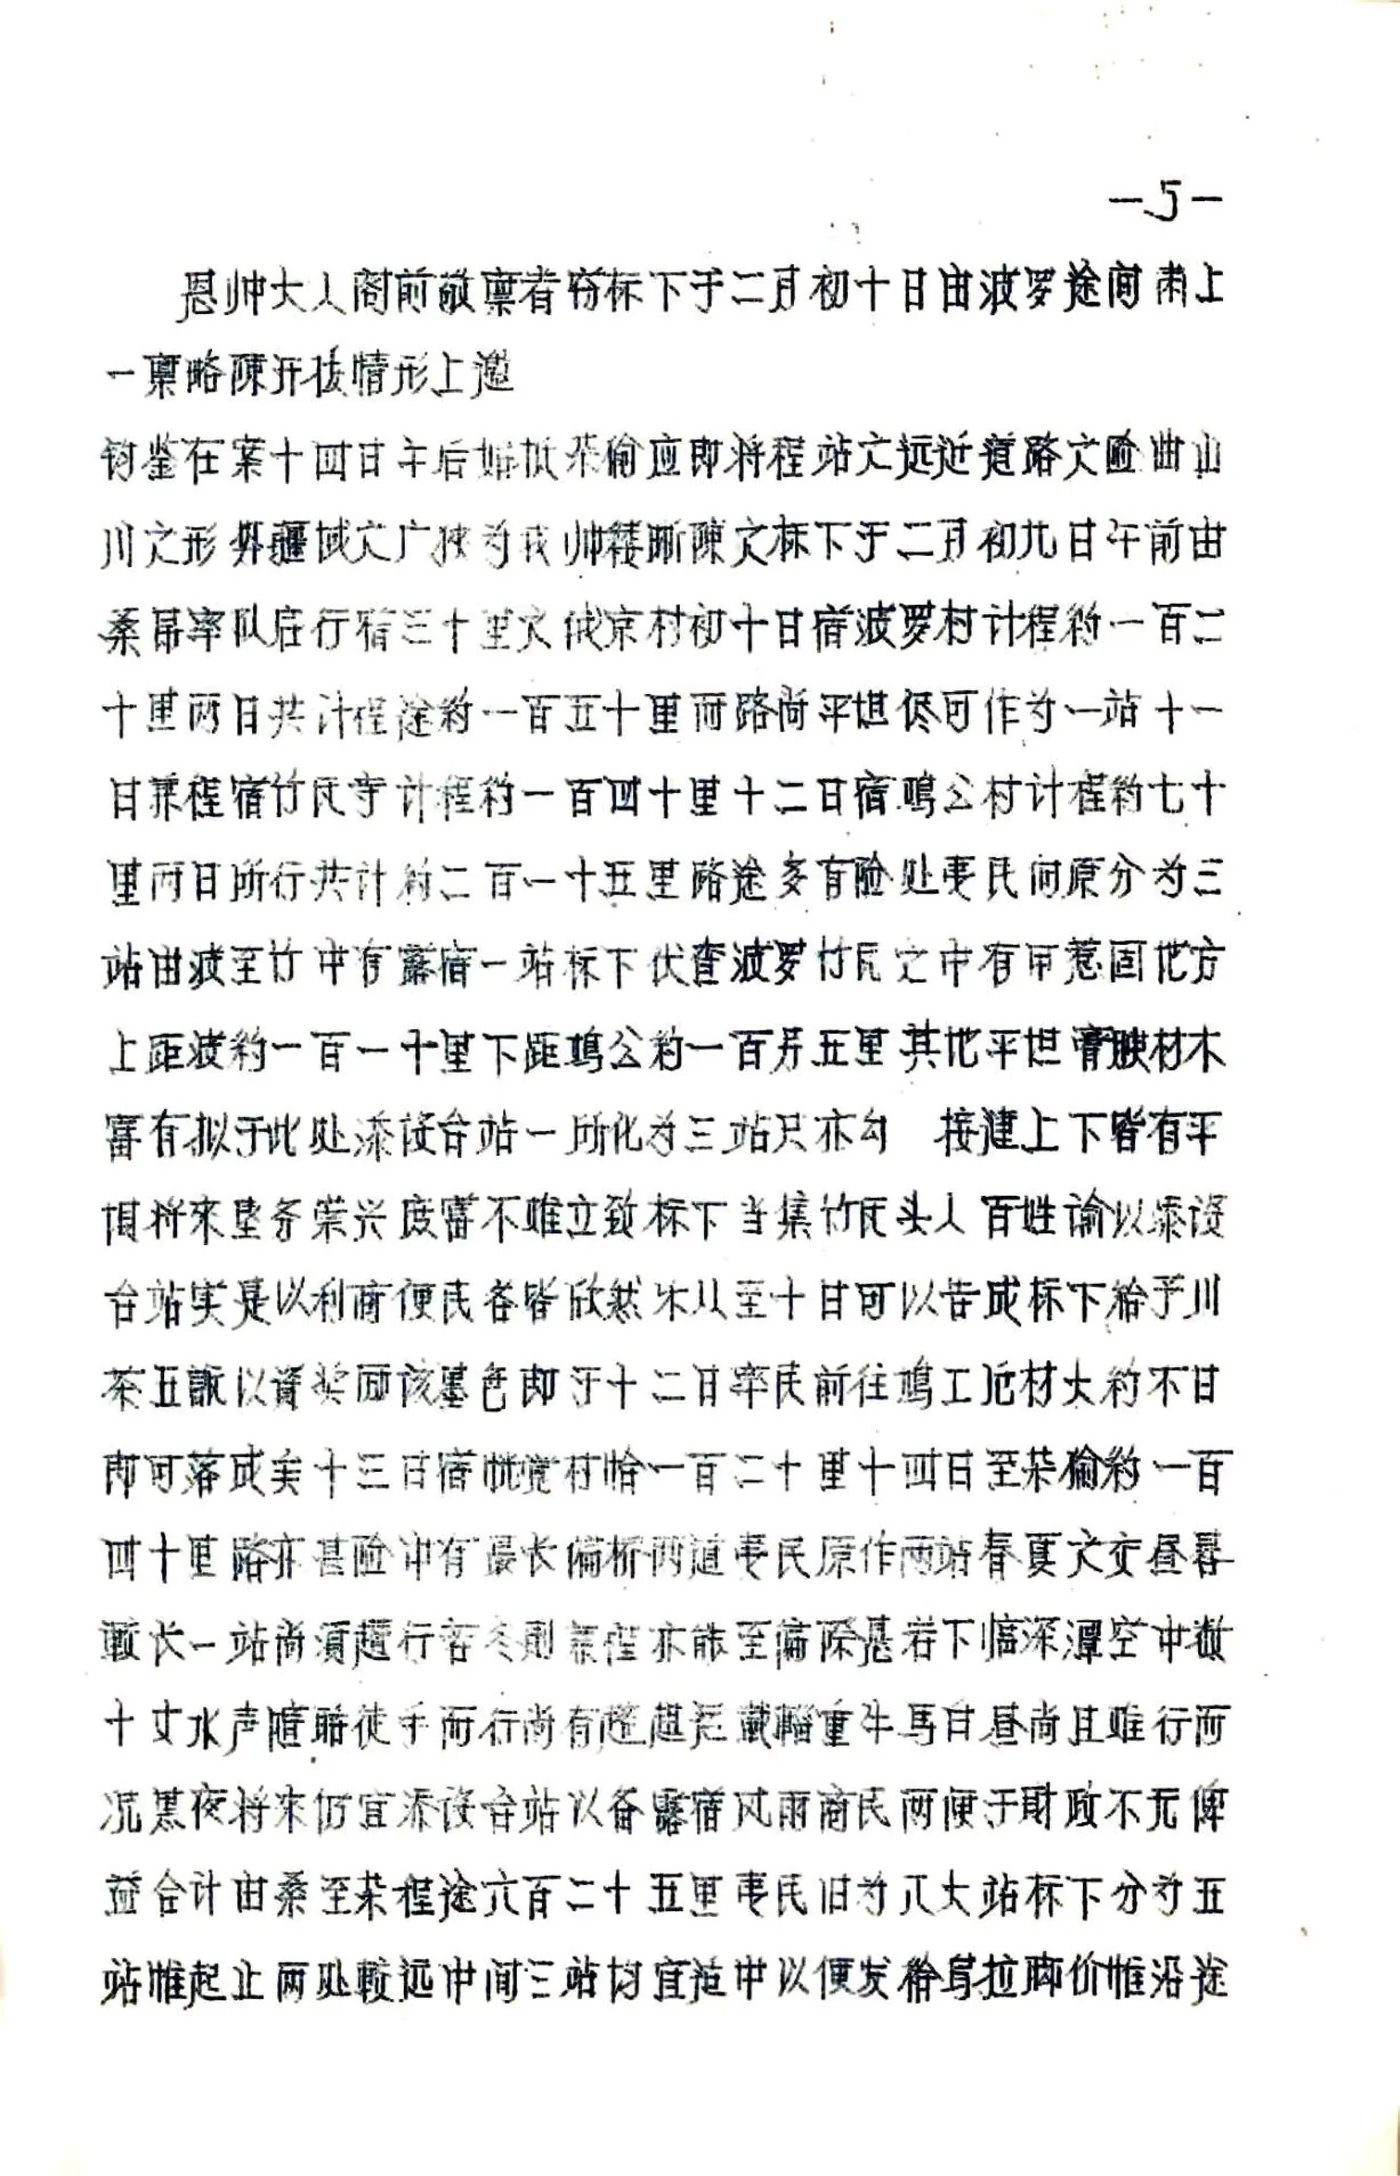 —5—
恩帅大人阁前敬禀者窃标下于二月初十日由波罗途间肃上
一禀略陈开拔情形上邀
钧鉴在案十四日午后始抵杂偷应即将程站之远近道路之险曲山
川之形势疆域之广狭为我帅缕晰陈之标下于二月初九日午前由
桑昂率队启行宿三十里之伕京村初十日宿波罗村计程约一百二
十里两日共计程途约一百五十里而路尚平坦尽可作为一站十一
日兼程宿竹民寺计程约一百四十里十二日宿鸣公村计程约七十
里两日所行共计约二百一十五里路途多有险处夷民间原分为三
站由波至竹中有露宿一站标下伏查波罗竹民之中有甲惹固地方
上距波约一百一十里下距鸣公约一百另五里其地平坦膏腴材木
富有拟于此处添设台站一所化为三站只亦匀 接连上下皆有平
垻将来垦务荣兴庶富不难立致标下当集竹民头人百姓谕以添设
台站实是以利商便民各皆欣然乐从至十日可以告成标下给予川
茶五甑以资奖励该墨色即于十二日率民前往鸠工庀材大约不日
即可落成矣十三日宿桄觉村恰一百二十里十四日至杂偷约一百
四十里路亦甚险中有最长偏桥两道夷民原作两站春夏之交昼晷
较长一站尚须趱行若冬则兼程亦能至偏际悬岩下临深潭空中数
十丈水声喧聒徒手而行尚有趑趄运载辎重牛马白昼尚且难行而
况黑夜将来仍宜添设台站以备露宿风雨商民两便于财政不无俾
益合计由桑至杂程途六百二十五里夷民旧为八大站标下分为五
站惟起止两处较远中间三站均宜适中以便发给乌拉脚价惟沿途